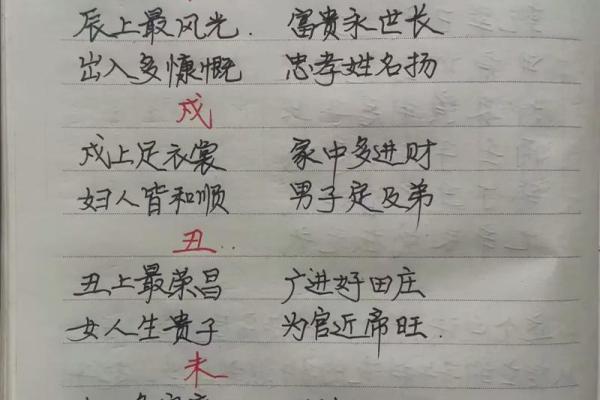 辰上最风光. 富贵永世长
出入多慷慨 忠孝姓名扬
戍
戍上足衣裳 家中多进财
妇人皆和顺 男子定及弟
丑..
丑上最荣昌 广进好田庄
女人生贵子 为官近帝旺.
未